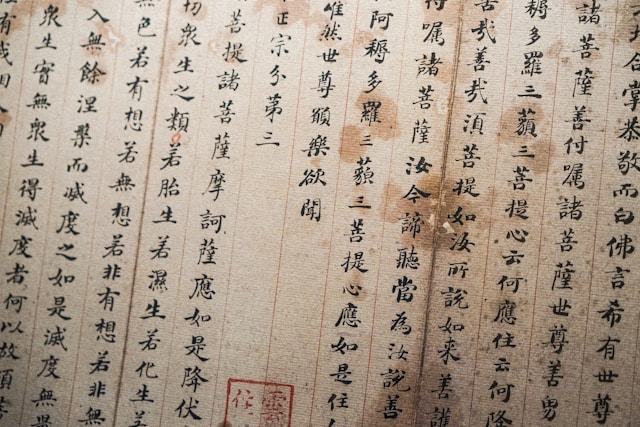 地合掌恭敬而白佛言希有世尊
諸菩薩善付囑諸菩薩世尊善男
耨多羅三藐三菩提心云何應住云何降
善哉善哉湏菩提如汝所說如來善護
付囑諸菩薩汝今諦聽當為汝說善
阿耨多羅三藐三菩提心應如是住
唯然世尊願樂欲聞
正宗分第三
菩提諸菩薩摩訶薩應如是降伏
切眾生之類若胎生若濕生若化生若
無色若有想若無想若非有想若非無
入無餘涅槃而滅度之如是滅度無量
眾生實無眾生得滅度者何以故湏菩
有我相人